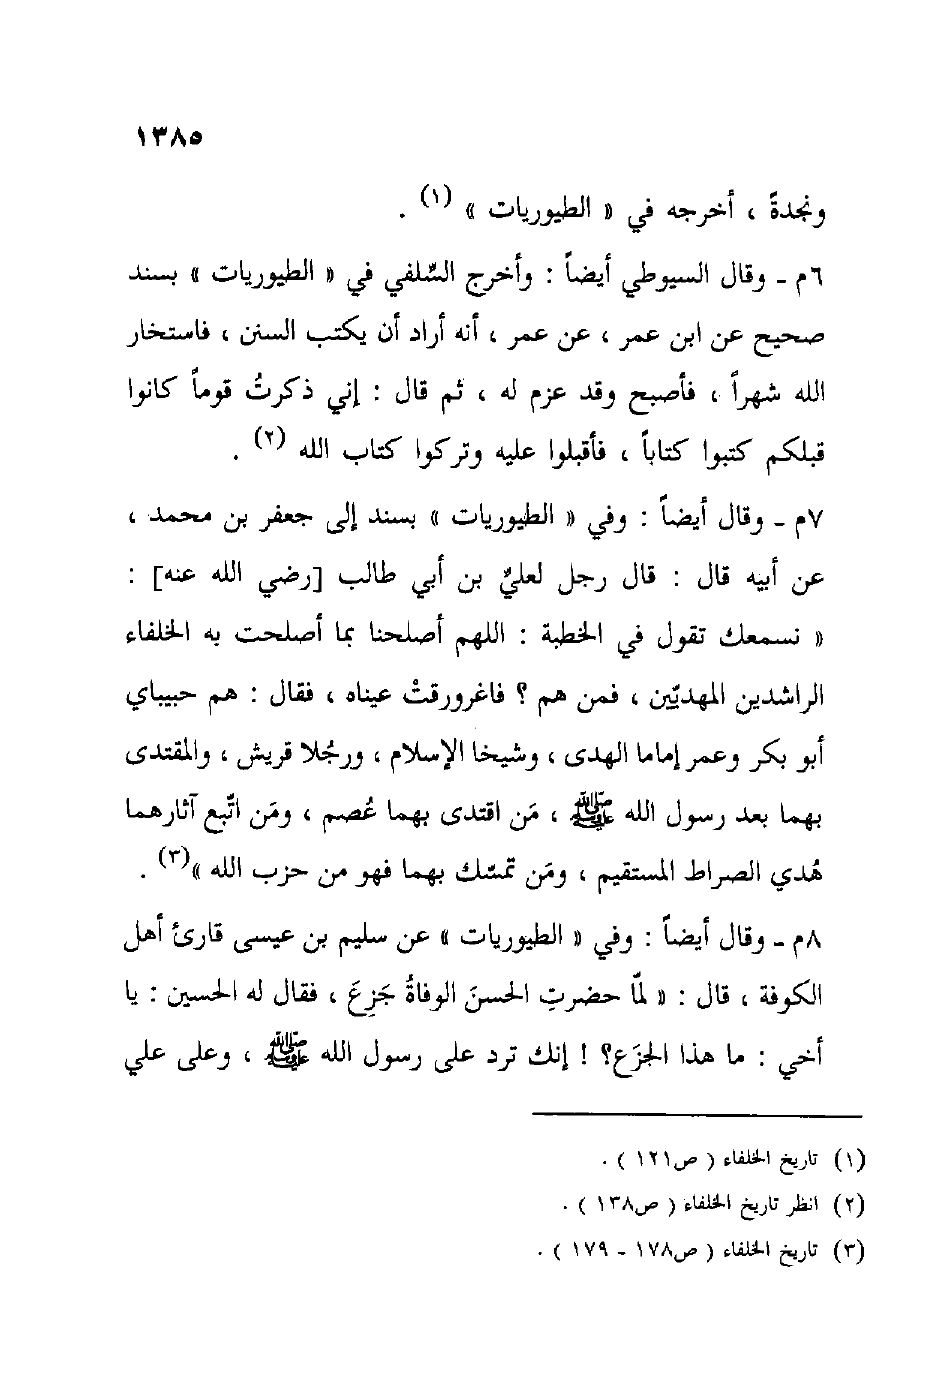 ١٣٨٥
ونجدةً ، أخرجه في « الطيوريات » (١) .
٦م ـ وقال السيوطي أيضاً : وأخرج السِّلفي في « الطيوريات » بسند
صحيح عن ابن عمر ، عن عمر ، أنه أراد أن يكتب السنن ، فاستخار
الله شهراً ، فأصبح وقد عزم له ، ثم قال : إني ذكرتُ قوماً كانوا
قبلكم كتبوا كتاباً ، فأقبلوا عليه وتركوا كتاب الله (٢) .
٧م ـ وقال أيضاً : وفي « الطيوريات » بسند إلى جعفر بن محمد ،
عن أبيه قال : قال رجل لعليِّ بن أبي طالب [رضي الله عنه] :
« نسمعك تقول في الخطبة : اللهم أصلحنا بما أصلحت به الخلفاء
الراشدين المهديّين ، فمن هم ؟ فاغرورقتْ عيناه ، فقال : هم حبيباي
أبو بكر وعمر إماما الهدى ، وشيخا الإسلام ، ورجُلا قريش ، والمقتدى
بهما بعد رسول الله ﷺ ، مَن اقتدى بهما عُصم ، ومَن اتّبع آثارهما
هُدي الصراط المستقيم ، ومَن تمسّك بهما فهو من حزب الله »(٣) .
٨م ـ وقال أيضاً : وفي « الطيوريات » عن سليم بن عيسى قارئ أهل
الكوفة ، قال : « لمّا حضرتِ الحسنَ الوفاةُ جَزِعَ ، فقال له الحسين : يا
أخي : ما هذا الجزَع؟ ! إنك ترد على رسول الله ﷺ ، وعلى علي
(١) تاريخ الخلفاء ( ص١٢١ ) .
(٢) انظر تاريخ الخلفاء ( ص١٣٨ ) .
(٣) تاريخ الخلفاء ( ص١٧٨ ـ ١٧٩ ) .